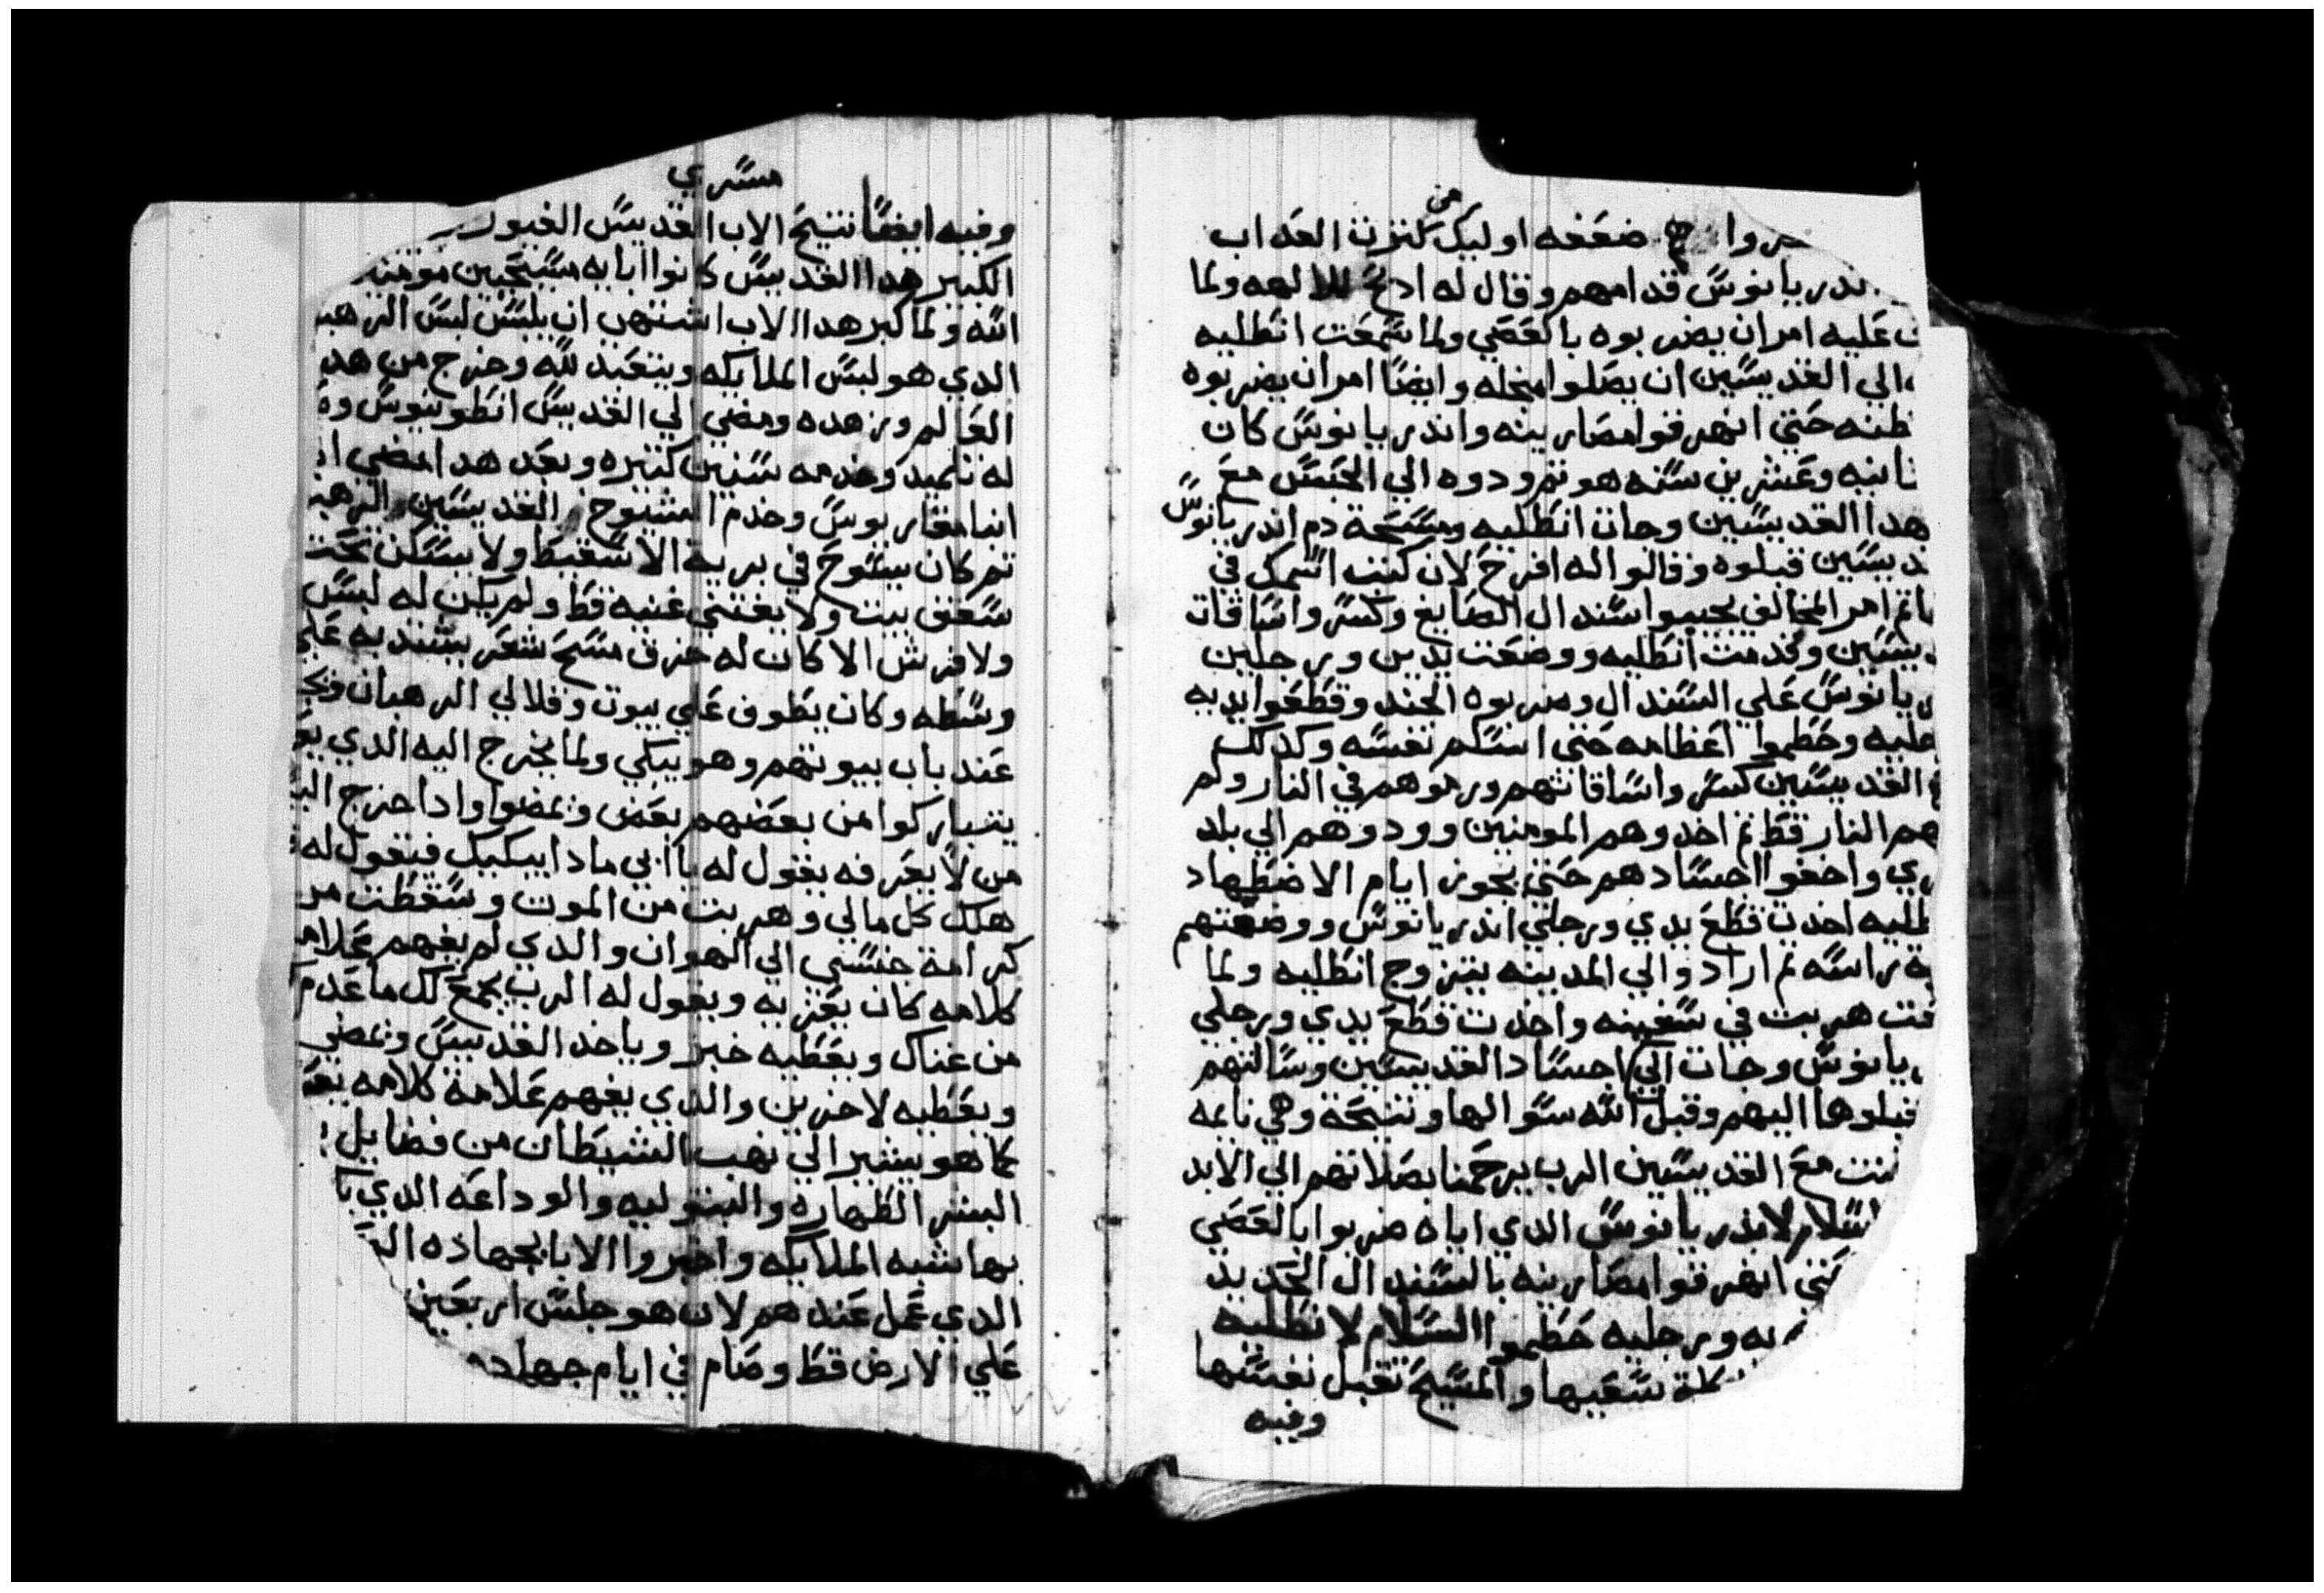 من
ضعفه اوليك كنزت العداب
قدامهم وقال له ادبح للالهه ولما
عليه امر ان يضربوه بالعصي ولما سمعت انطليه
الي القديسين ان يصلوا منجله وايضا امر ان يضربوه
حتي انهرقوا مصارينه واندريانوس كان
وعشرين سنه هو تم ودوه الي الحبس مع
هدا القديسين وجات انطليه ومسحة دم اندريانوس
قبلوه وقالوا له افرح لان كتب اسمك في
امر المخالف يجيبوا سندال الصايغ وكسروا ساقات
وقدمت انطليه ووضعت يدين ورجلين
علي السندال وضربوه الجند وقطعوا يديه
وحطموا اعظامه حتي اسلم نفسه وكدلك
القديسين كسروا ساقاتهم ورموهم في النار ولم
النار قط تم اخدوهم المومنين وودوهم الي بلد
واخفوا اجسادهم حتي يجوز ايام الاضطهاد
اخدت قطع يدي ورجلي اندريانوس ووضعتهم
راسه تم ارادوالي المدينه يتزوج انطليه ولما
هربت في سفينه واخدت قطع يدي ورجلي
وجات الي اجساد القديسين وسالتهم
اليهم وقبل الله سوالها وتنيحة وهي نايمه
مع القديسين الرب يرحمنا بصلاتهم الي الابد
لاندريانوس الدي اياه ضربوا بالعصي
انهرقوا مصارينه بالسندال الحديد
ورجليه حطموا السلام لانطليه
سعيها والمسيح تقبل نفسها
وفيه
مسري
وفيه ايضا تنيح الاب القديس الغيور
الكبير هدا القديس كانوا ابايه مسيحيين
الله ولما كبر هدا الاب اشتهي ان يلبس لبس
الدي هو لبس الملايكه ويتعبد لله وخرج من
العالم وزهده ومضي الي القديس انطونيوس
له تلميد وخدمه سنين كتيره وبعد هدا مضي
انبا مقاريوس وخدم الشيوخ القديسين
تم كان يسوح في برية الاسقيط ولا يسكن تحت
سقف بيت ولا يقتني غنيه قط ولم يكن له لبس
ولا فرش الا كان له خرق مسح شعر يشتد به علي
وسطه وكان يطوف علي بيوت وقلالي الرهبان
عند باب بيوتهم وهو يبكي ولما يخرج اليه الدي
يتباركوا من بعضهم بعض ويمضوا وادا خرج
من لا يعرفه يقول له يا ابي مادا يبكيك فيقول له
هلك كل مالي وهربت من الموت وسقطت من
كرامة جنسي الي الهوان والدي لم يفهم
كلامه كان يعزيه ويقول له الرب يجمع لك ما عدم
من غناك ويعطيه خبز وياخد القديس ويمضي
ويعطيه لاخرين والدي يفهم علامة كلامه
كما هو يشير الي نهب الشيطان من فضايل
البشر الطهاره والبتوليه والوداعه الدي
بها شبه الملايكه واخبروا الابا بجهاده
الدي عمل عندهم لان هو جلس اربعين
علي الارض قط وصام في ايام جهاده